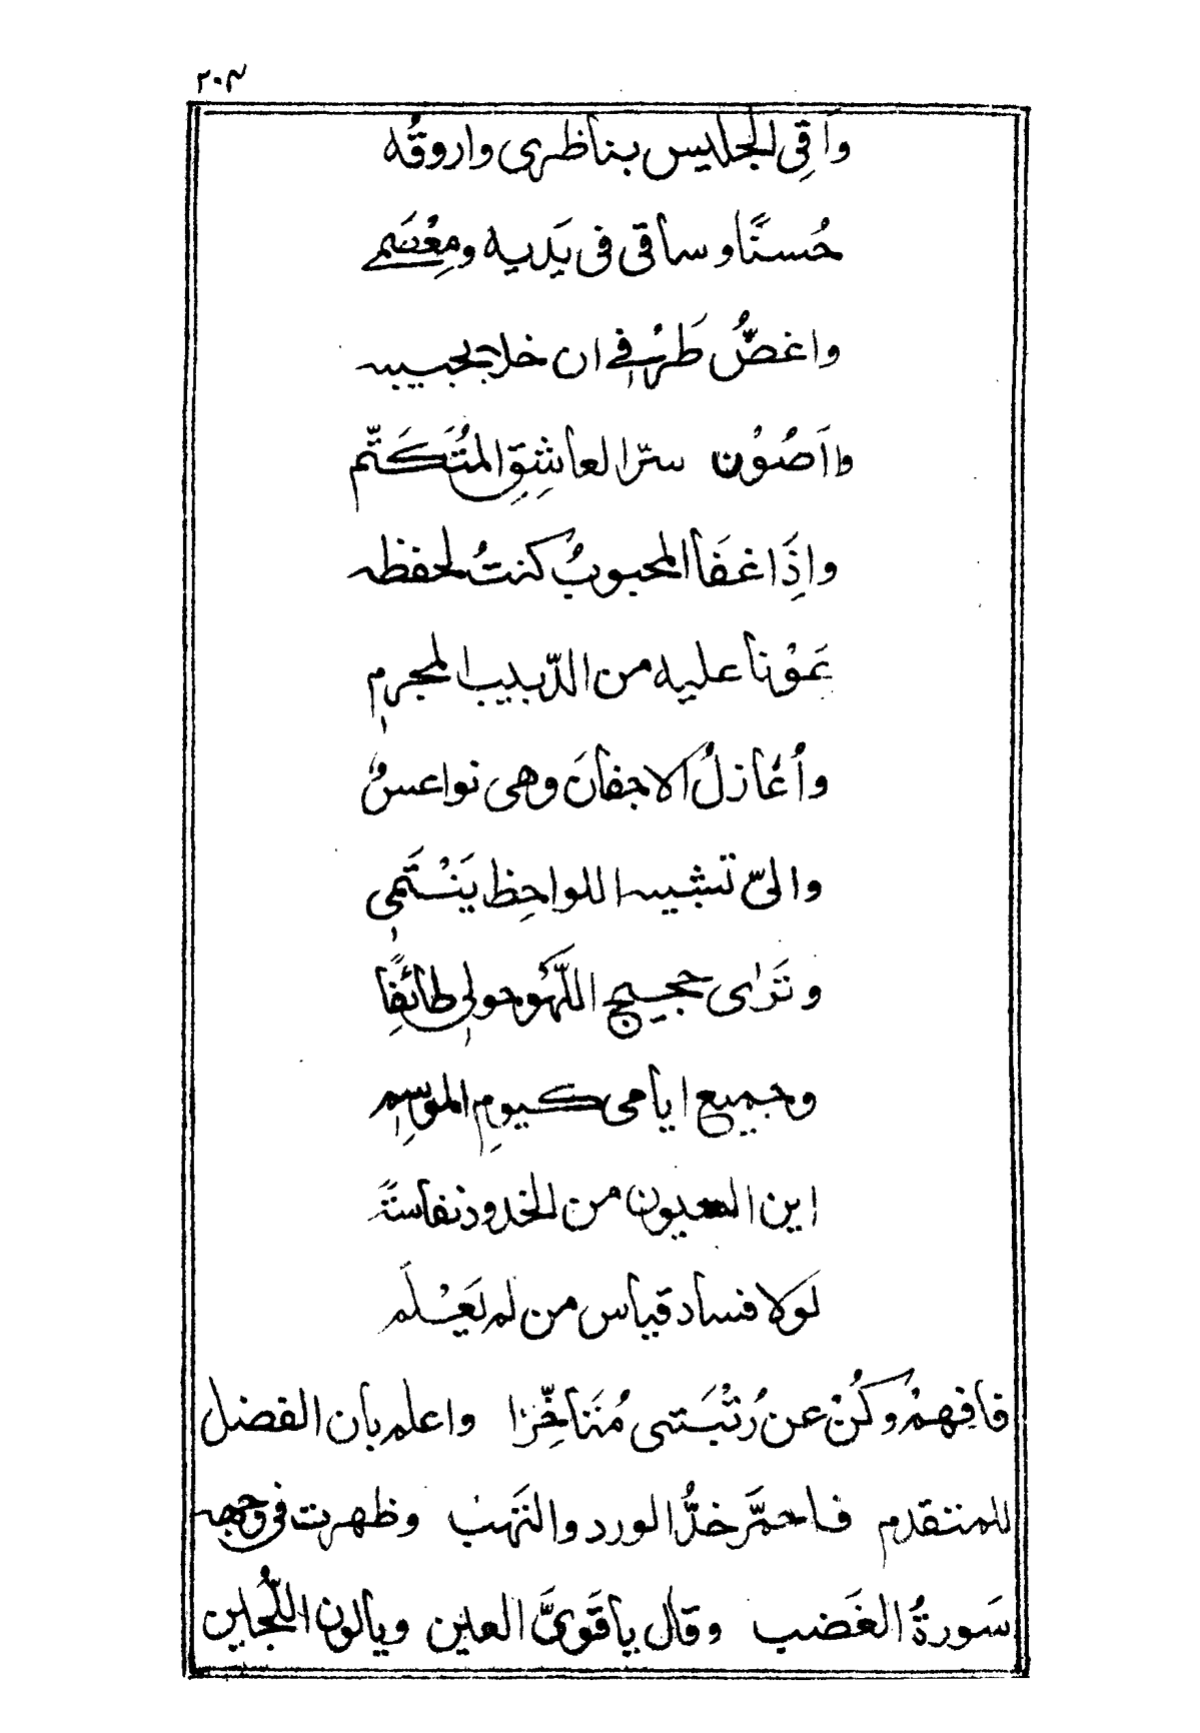 ٢٠٣
وَاَقِى الجليس بناظرى واروقُه
حُسنًا وساقى فى يَديه ومِعْصَمى
واغضُّ طَرْفى ان خلا بحبيبه
وَاَصُوْن سرّ العاشِقِ المتُكَتَّم
واِذَا غفَا المحبوبُ كنتُ لحفظه
عَوْنا عليه من الدّبيب المجرم
واُغازلُ الاجفانَ وهى نواعسٌ
والىّ تشبيه اللواحِظ يَنْتَمِى
وتَرٰى حجيج اللّهْو حولى طائفًا
وجميع ايامى كيومِ الموسِم
اين العيون من الخدود نفاسةً
لولا فساد قياس من لم يَعْلَم
فافهمْ وكُنْ عن رُتْبَتى مُتَأخِّرًا واعلم بأن الفضل
للمتقدم فاحمرَّ خدُّ الورد والتَهَبْ وظهرت فى وجهه
سَورةُ الغَضب وقال ياقَوىَّ العين ويالون اللُّجين